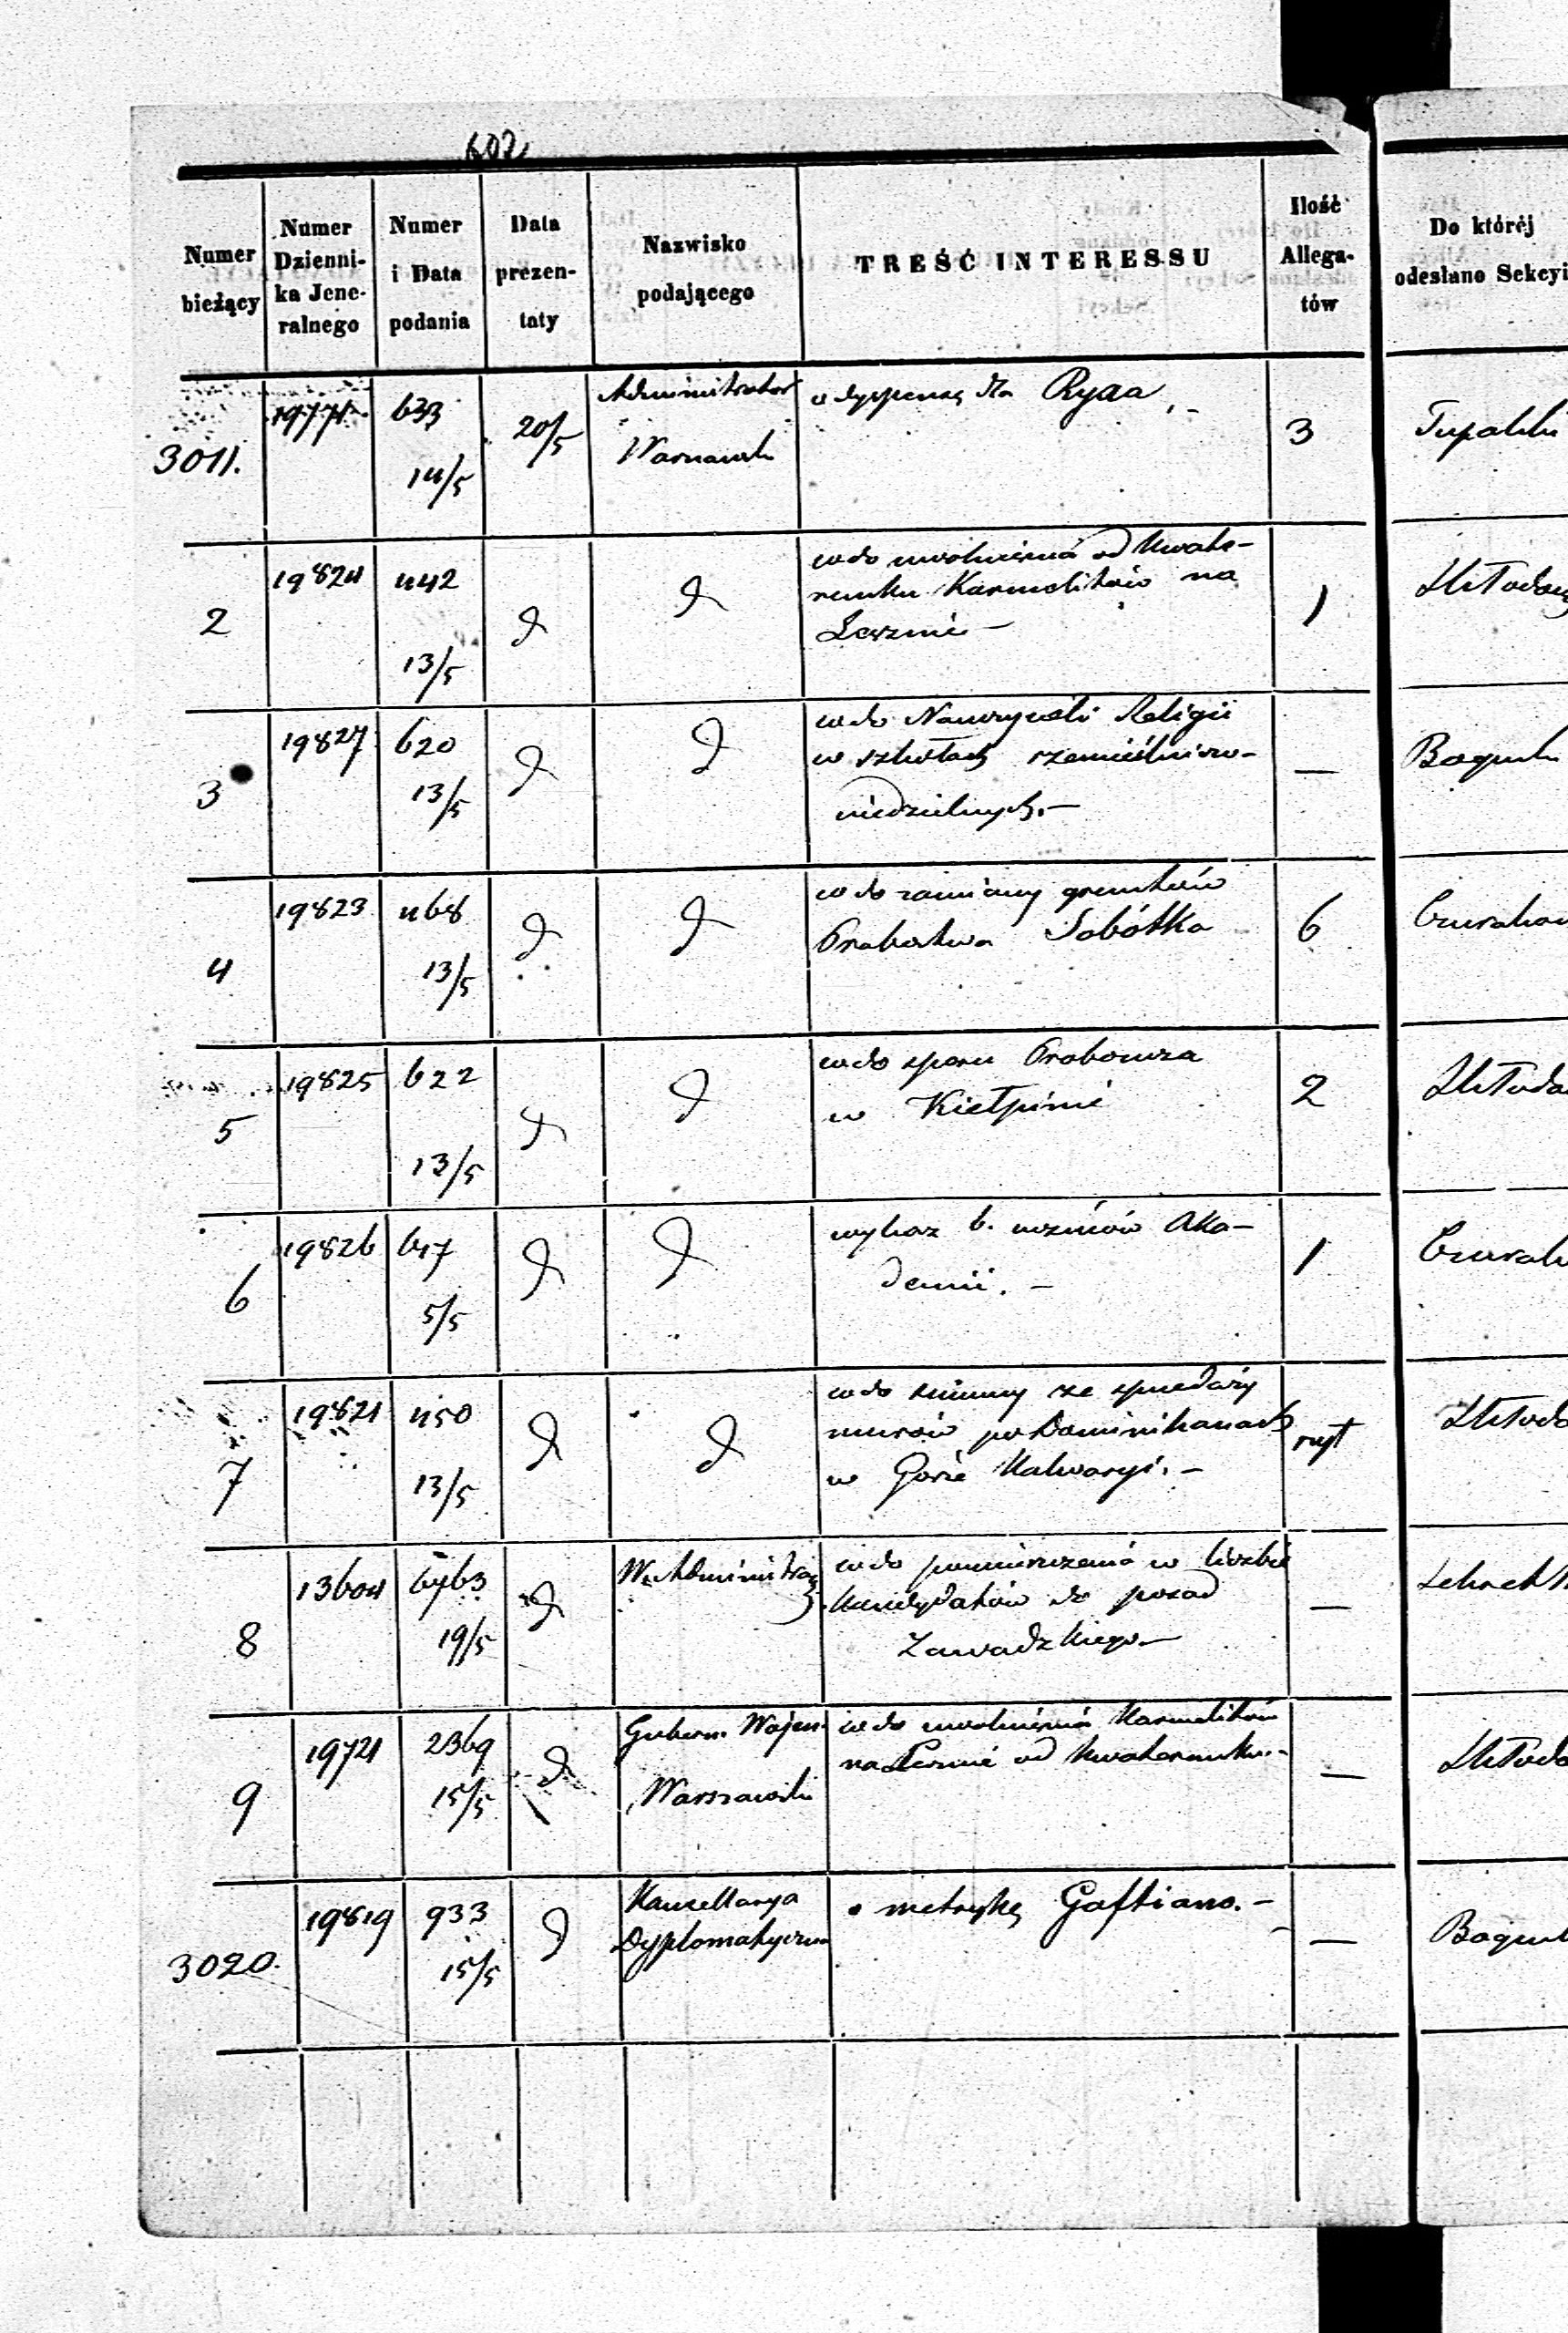 602
Numer bieżący
Numer Dzienni- ka Jene- ralnego
Numer i Data podania
Data prezen- taty
Nazwisko podającego
TREŚĆ INTERESSU
Ilość Allega- tów
Do któréj odesłano Sekcyi
3011.
19771
633
14/5
20/5
Administrator
Warszawski
o dyspensę dla Ryxa
3
2
19824
442
13/5
wdo uwolnienia od kwate-
runku Karmelitów na
Lesznie –
1
3
19827
620
13/5
wdo Nauczycieli Religii
w szkołach rzemieślniczo-
niedzielnych. –
—
4
19823
468
13/5
wdo zamiany gruntów
Probostwa Sobótka
6
5
19825
622
13/5
wdo sporu Proboszcza
w Kiełpinie
2
6
19826
647
5/5
wykaz b. uczniów Aka–
demii. –
1
7
19821
450
13/5
wdo summy ze sprzedaży
murów po Dominikanach
w Górze Kalwaryi. –
8
13604
6763
19/5
wdo pomieszczenia w liczbie
kandydatów do posad
Zawadzkiego –
—
9
19721
2369
15/5
Gubern. Wojen.
Warszawski
wdo uwolnienia Karmelitów
na Lesznie od kwaterunku. –
—
3020.
19819
933
15/5
Kancellarya
Dyplomatyczna
o metrykę Gaftiano. –
—